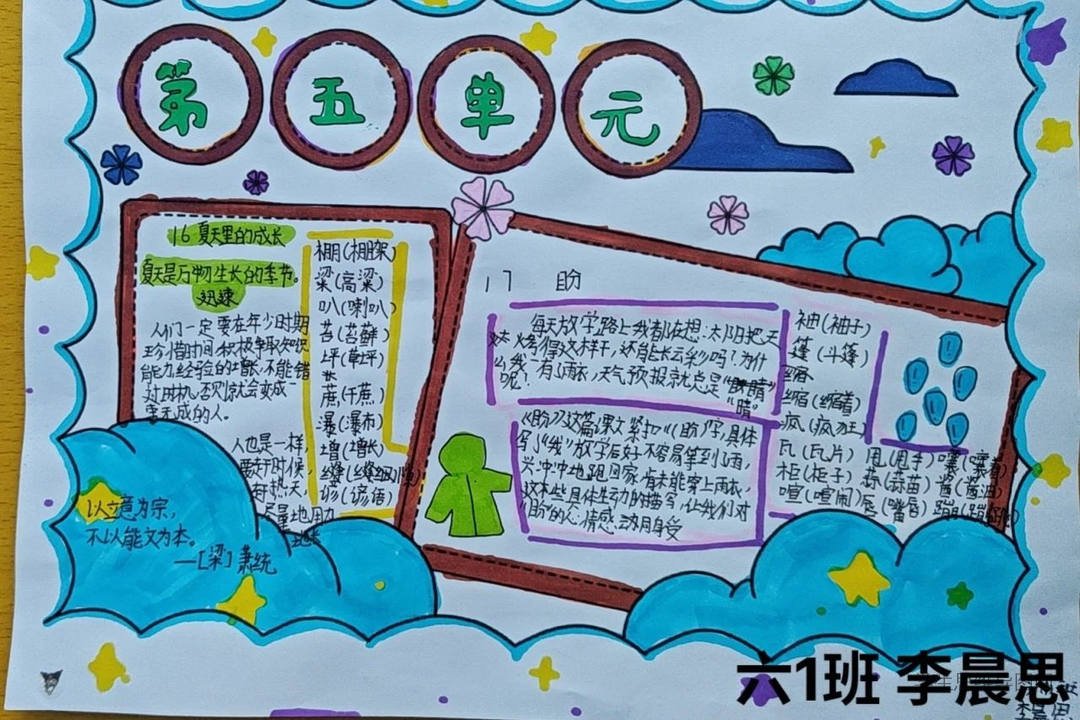 第五单元
16 夏天里的成长
夏天是万物生长的季节。
迅速
人们一定要在年少时期
珍惜时间积极争取知识
能力经验的增长,不能错
过时机,否则就会变成一
事无成的人。
人也是一样,
要赶时候,
赶热天,
尽量地用力
地长
棚(棚架)
梁(高粱)
叭(喇叭)
苔(苔藓)
坪(草坪)
蔗(干蔗)
瀑(瀑布)
增(增长)
缝(缝
谚(谚语)
以立意为宗,
不以能文为本。
—[梁]萧统
17 盼
每天放学路上我都在想:太阳把天
烤得这样干,还能长云彩吗?为什
么我一有了雨衣,天气预报就总是
呢?
"晴"
《盼》这篇课文紧扣"盼"字,具体
写了"我"放学后好不容易等到了雨,
兴冲冲地跑回家,肯未能穿上雨衣,
这本些具体生动的描写,让我们对
"盼"的
袖(袖子)
篷(斗篷)
缩(缩着)
疯(疯狂)
瓦(瓦片) 甩(甩手) 囊(囊着)
柜(柜子) 蒜(蒜苗) 酱(酱油)
喧(喧闹) 唇(嘴唇)
六1班 李晨思